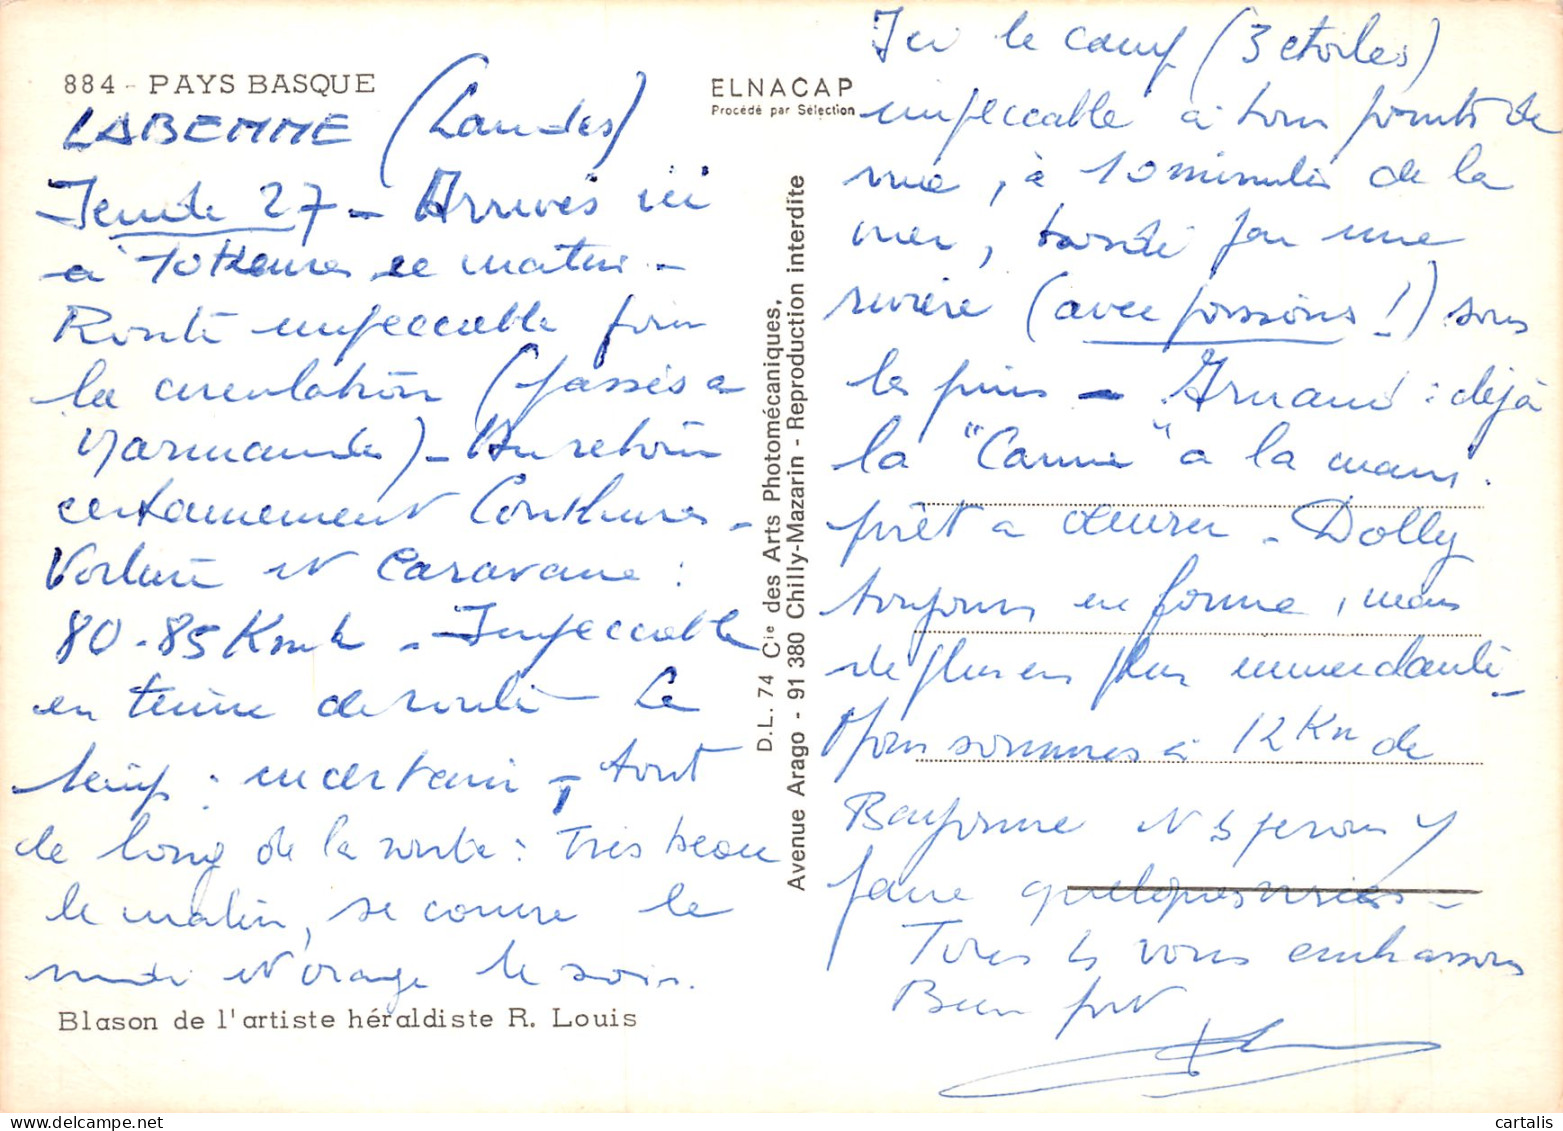 884 - PAYS BASQUE
LABEMME (Landes)
Jeudi 27 - Arrivés ici
à 10 Heures ce matin -
Route impeccable pour
la circulation (passés à
Marmande) - Au retour
certainement Couthures -
Voiture et Caravane :
80-85 Kmh - Impeccable
en tenue de route - Le
temps : incertain - tout
le long de la route : Très beau
le matin, se couvre le
midi et orage le soir.
Blason de l'artiste héraldiste R. Louis
ELNACAP
Procédé par Sélection
D.L. 74 Cie des Arts Photomécaniques.
Avenue Arago - 91 380 Chilly-Mazarin - Reproduction interdite
Ici le camp (3 etoiles)
impeccable à tous points de
vue, à 10 minutes de la
mer, bordé par une
rivière (avec poissons !) sous
les pins - Arnaud : déjà
la "Canne" à la main.
prêt à
Dolly
toujours en forme, mais
de plus en plus emmerdante -
Nous sommes à 12 Km de
Bayonne et irons y
faire quelques
Tous vous embrassons
Bien fort
cartalis